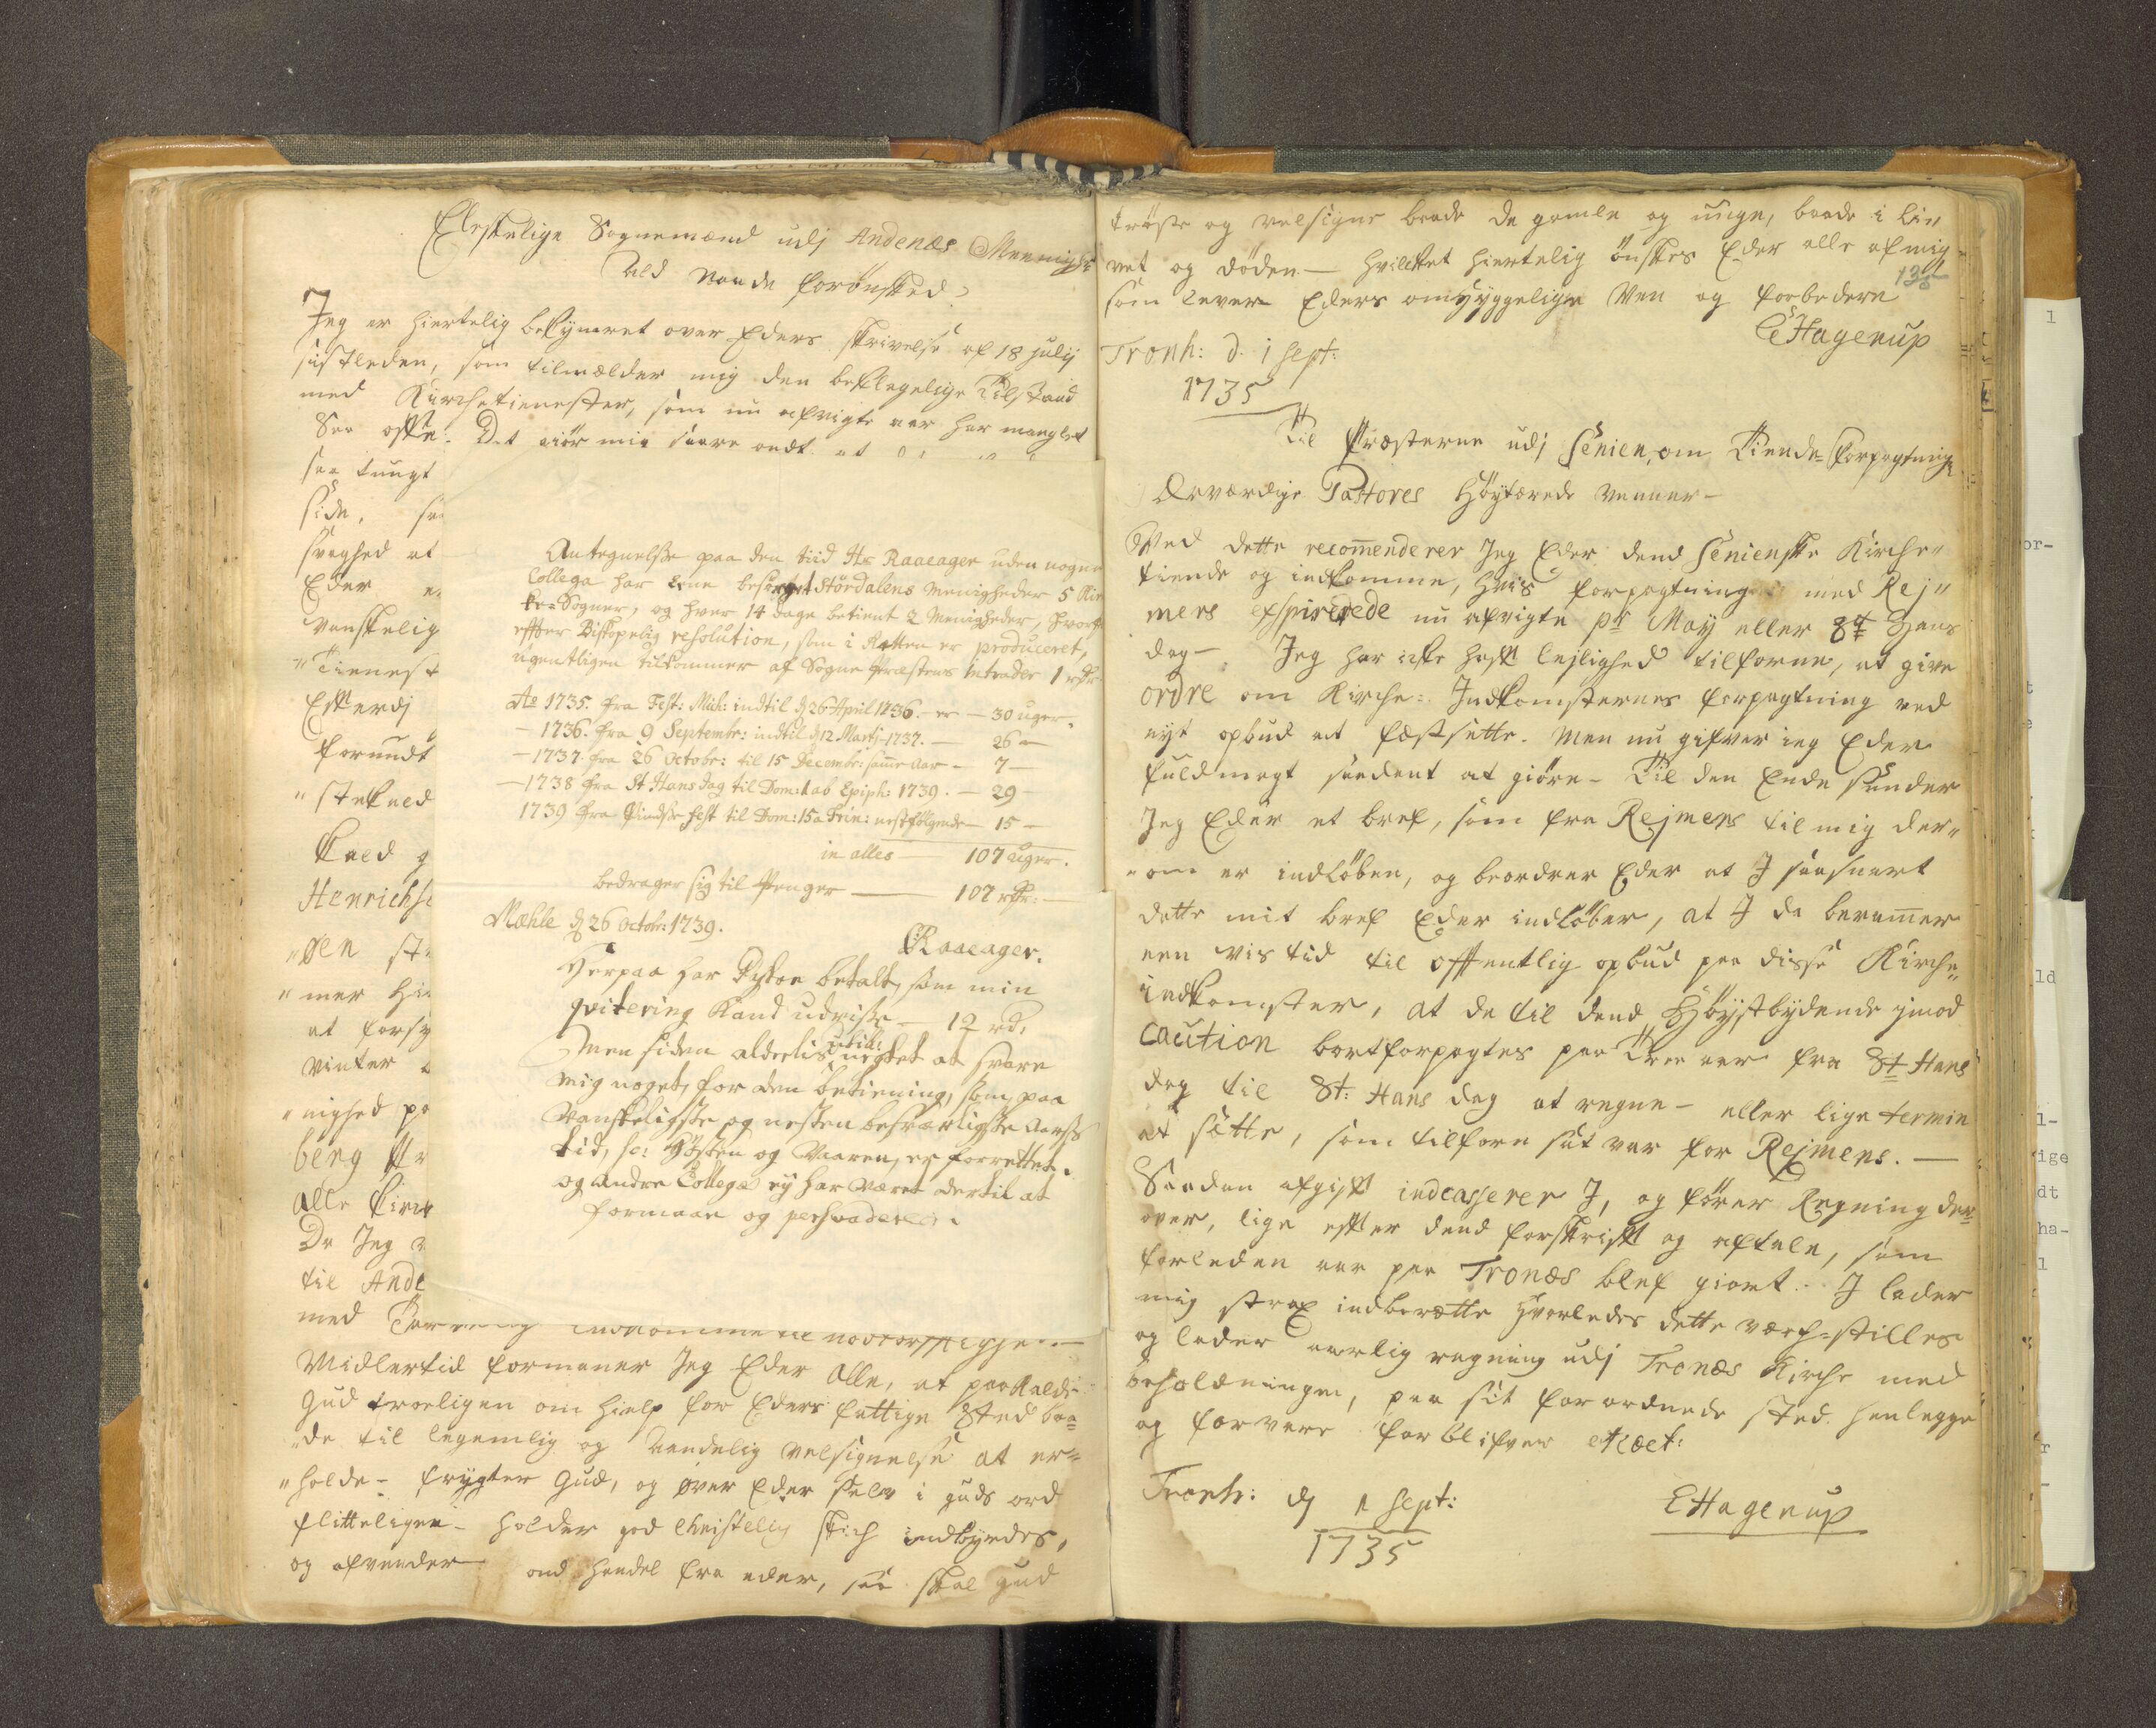 Elskelige Sognemænd udj Andenæs Meenighed
All Naade forönsked
Jeg er hiertelig bekÿmret over Eders skrivelse af 18 julij
sistleden, som tilmælder mig den beklagelige Tilstand
med Kirchetienesten, som nu afvigte aar har manglet
Saa offte. Det giör mig saare ondt at
saa tungt
side, saa
svaghed at
Eder
Vanskelig
"Tienest
Efterdj
forundt
"stekald
Kald
Henrichs
"øen
"mer
at forsy
vinter
"nighed
berg
alle
Da Jeg
til Ande
med
Midlertid formaner Jeg Eder alle, at paakalde
Gud troeligen om hielp for Eders fattige Sted baa=
"de til legemlig og Aandelig velsignelse at er=
"holde - frygter Gud, og øver Eder selv i guds ord
flitteligen - holder god Christelig skich indbyrdes,
og afvender ond handel fra eder, saa skal gud
Antegnelsse paa den tiid Hr Raaeager uden nogen
Collega har Eene besörget Stördalens Menigheder 5 Kir
ke=Sogner, og hver 14 dage betient 2 Menigheder, hvor
effter Biskopelig resolution, som i Retten er produceret,
ugentligen tilkommer af Sogne Præstens intrader 1 rdr
Ao 1735. fra Fest: Mich: indtil d 26 April 1736. er - 30 uger.
- 1736. fra 9 Septembr: indtil d 12 Martij 1737. - 26 -
- 1737. fra 26 Octobr: til 15 Decembr: samme Aar - 7 -
- 1738 fra St Hans dag til Dom: 1 ab Epiph: 1739. - 29 -
1739 fra Pindse fest til Dom: 15 a Trin: nestfölgende - 15 -
in alles - 107 uger.
bedrager sig til Penger - 107 rdr: -
Mæhle d 26 Octobr: 1739.
Raaeager.
Herpaa har betalt, som min
qvitering Kand udvisse - 12 rd.
Men siden alderlis negtet at svare
mig noget, for den betiening, som paa
Vanskeligste og nesten besværligste Aars
tid, so: Hösten og Vaaren, er forrettet.
og andre Collegæ ej har været dertil at
formaae og persvadere.
tröste og velsigne baade de gamle og unge, baade i Li"
vet og döden - hvilket hiertelig önskes Eder alle af mig
138
som lever Eders omhyggelige Ven og forbedere
E Hagerup
Tronh: d. 1 Sept:
1735
Til Præsterne udj Senien, om Tiende=forpagtning
Ærværdige Pastores Höytærede Venner -
Med dette recommenderer Jeg Eder dend Senienske Kirche"
tiende og indkomme, hvis forpagtning med Rej"
mers exspirerede nu afvigte pr May eller St Hans
dag - Jeg har icke hafft lejlighed tilforne, at give
ordre om Kirche=Indkomsternes forpagtning ved
nyt opbud at fæstsette. Men nu gifver jeg Eder
fuldmagt saadant at giöre - Til den Ende sender
Jeg Eder et bref, som fra Rejmers til mig der"
"om er indlöben, og beordrer Eder at I saasnart
dette mit bref Eder indlöber, at I da berammer
een vis tid til offentlig opbud paa disse Kirche"
indkomster, at de til dend Höystbydende imod
Caution bortforpagtes paa Tree aar fra St Hans
dag til St: Hans dag at regne - eller lige termin
at sætte, som tilforn sat var for Rejmers. -
Saadan afgift indcasserer I, og förer Regning der=
over, lige effter dend forskrifft og aftale, som
forleden aar paa Tronæs blef giort. I lader
mig strax indberætte hvorledes dette værch=stilles
og lader aarlig regning udj Tronæs Kirche med
beholdningen, paa sit forordnede sted henlegge
og forvare forblifver etc.
Tronh: d 1 Sept:
1735
E Hagerup